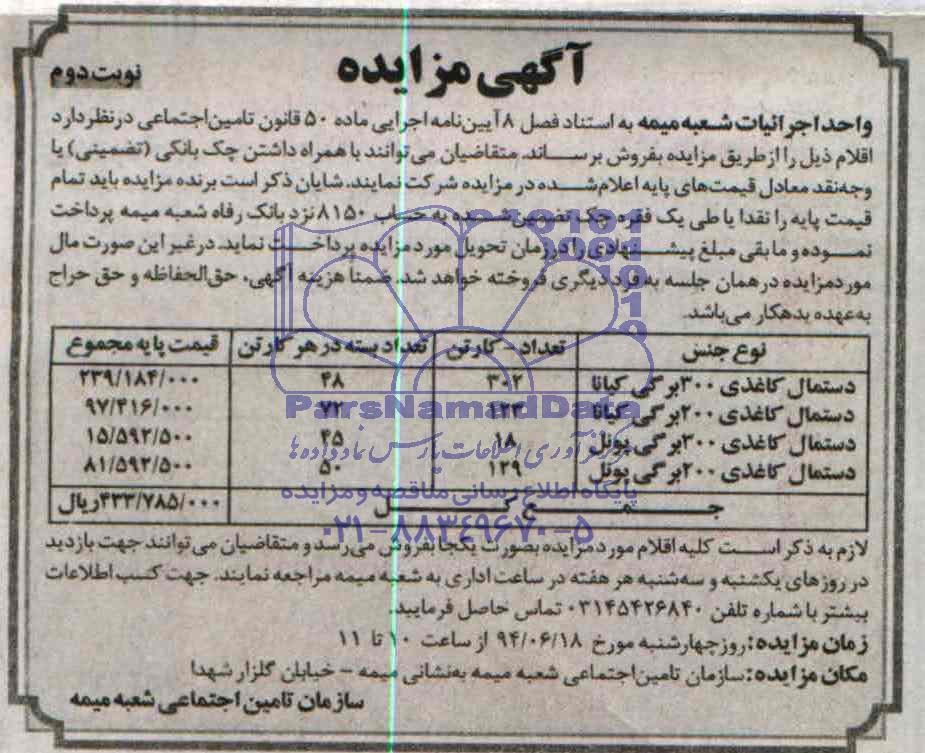 آگهی مزایده
نوبت دوم
واحد اجرائیات شعبه میمه به استناد فصل ۸ آیین‌نامه اجرایی ماده ۵۰ قانون تامین‌اجتماعی درنظر دارد
اقلام ذیل را از طریق مزایده بفروش برساند. متقاضیان می‌توانند با همراه داشتن چک بانکی (تضمینی) یا
وجه‌نقد معادل قیمت‌های پایه اعلام‌شده در مزایده شرکت نمایند. شایان ذکر است برنده مزایده باید تمام
قیمت پایه را نقدا یا طی یک فقره چک تضمین‌شده به حساب ۸۱۵۰ نزد بانک رفاه شعبه میمه پرداخت
نموده و مابقی مبلغ پیشنهادی را در زمان تحویل مورد مزایده پرداخت نماید. در غیر این صورت مال
مورد مزایده در همان جلسه به فرد دیگری فروخته خواهد شد. ضمنا هزینه آگهی، حق‌الحفاظه و حق حراج
به‌عهده بدهکار می‌باشد.
نوع جنس تعداد - کارتن تعداد بسته در هر کارتن قیمت پایه مجموع
دستمال کاغذی ۳۰۰ برگی کیانا ۳۰۲ ۴۸ ۲۳۹/۱۸۴/۰۰۰
دستمال کاغذی ۲۰۰ برگی کیانا ۱۲۳ ۷۲ ۹۷/۴۱۶/۰۰۰
دستمال کاغذی ۳۰۰ برگی پونل ۱۸ ۴۵ ۱۵/۵۹۲/۵۰۰
دستمال کاغذی ۲۰۰ برگی پونل ۱۲۹ ۵۰ ۸۱/۵۹۲/۵۰۰
جمع کل ۴۳۳/۷۸۵/۰۰۰ ریال
لازم به ذکر است کلیه اقلام مورد مزایده بصورت یکجا بفروش می‌رسد و متقاضیان می‌توانند جهت بازدید
در روزهای یکشنبه و سه‌شنبه هر هفته در ساعت اداری به شعبه میمه مراجعه نمایند. جهت کسب اطلاعات
بیشتر با شماره تلفن ۰۳۱۴۵۴۲۶۸۴۰ تماس حاصل فرمایید.
زمان مزایده: روز چهارشنبه مورخ ۹۴/۰۶/۱۸ از ساعت ۱۰ تا ۱۱
مکان مزایده: سازمان تامین‌اجتماعی شعبه میمه به‌نشانی میمه - خیابان گلزار شهدا
سازمان تامین اجتماعی شعبه میمه
ParsNamadData
مرکز فرآوری اطلاعات پارس نماد داده‌ها
پایگاه اطلاع رسانی مناقصه و مزایده
۰۲۱-۸۸۳۴۹۶۷۰-۵